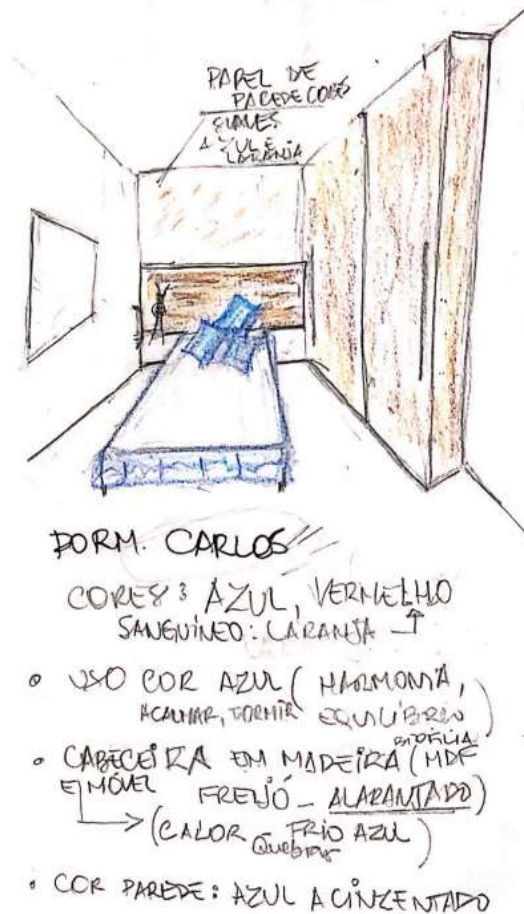 PAPEL DE
PAREDE CORES
SUAVES
AZUL E
LARANJA
DORM. CARLOS
CORES: AZUL, VERMELHO
SANGUÍNEO: LARANJA
• USO COR AZUL (HARMONIA,
ACALMAR, DORMIR EQUILÍBRIO)
BIOFILIA
• CABECEIRA EM MADEIRA (MDF
E MÓVEL FREIJÓ - ALARANJADO)
(CALOR QUEBRAR FRIO AZUL)
• COR PAREDE: AZUL ACINZENTADO